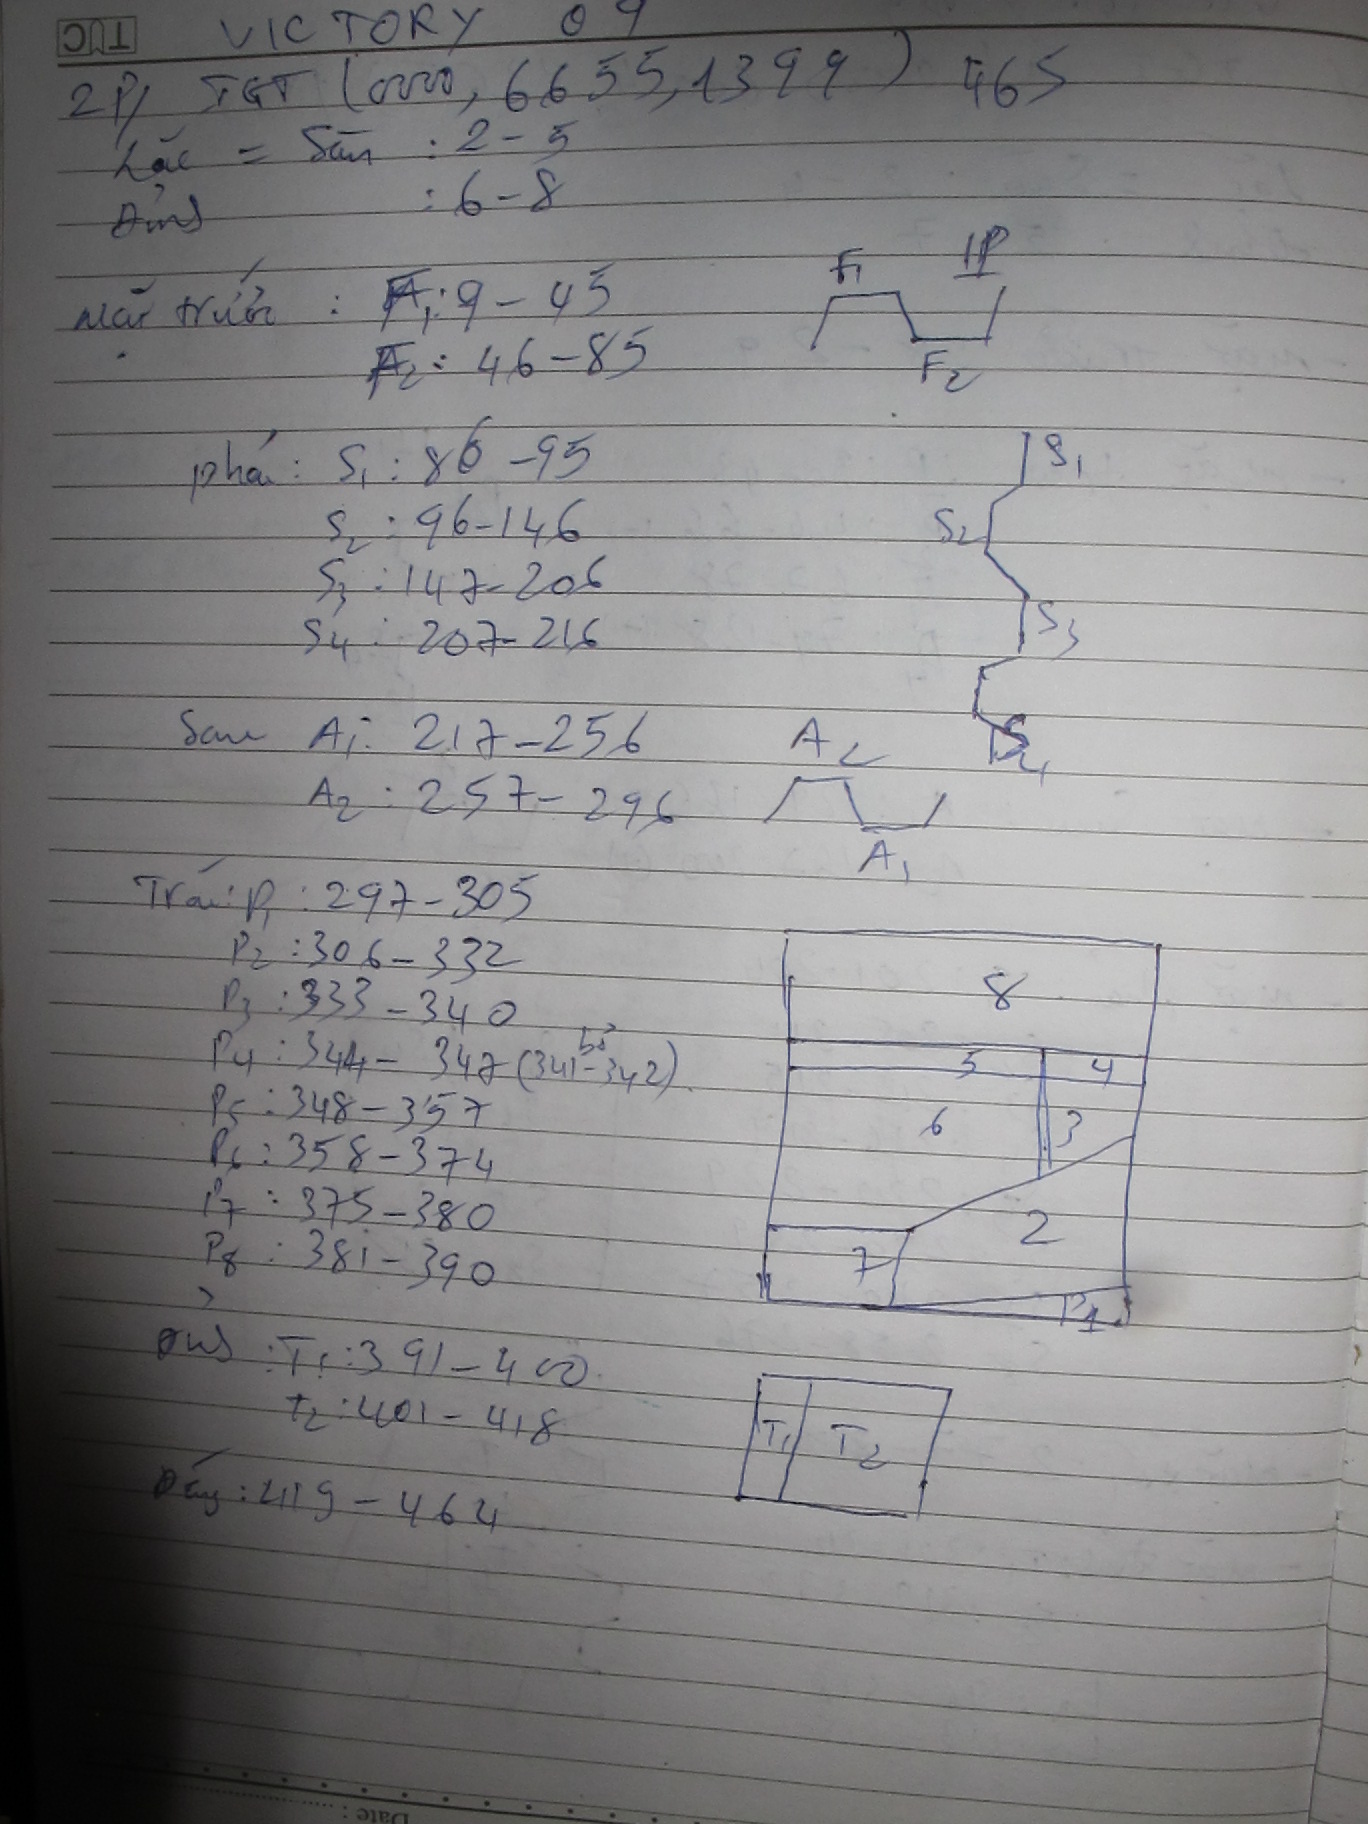 TUC VICTORY 09
2P/ TGT (0000, 6655, 1399) 465
Lắc = Sàn : 2 - 5
: 6 - 8
Mặt trước : F1: 9 - 45
F2: 46 - 85
F1 1P
F2
phải: S1: 86 - 95
S2: 96 - 146
S3: 147 - 206
S4: 207 - 216
S1
S2
S3
S4
Sau A1: 217 - 256
A2: 257 - 296
A2
A1
Trái: P1: 297 - 305
P2: 306 - 332
P3: 333 - 340
P4: 344 - 347 (341 - 342)
P5: 348 - 357
P6: 358 - 374
P7: 375 - 380
P8: 381 - 390
8
5 4
6 3
2
7
P1
: T1: 391 - 400
T2: 401 - 418
Đáy: 419 - 464
T1 T2
Date :